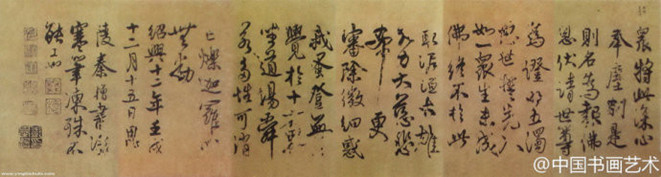 衆將此深心
奉塵剎是
則名為報佛
恩伏請世尊
為證明五濁
惡世誓先入
如一衆生未成
佛終不於此
取泥洹大雄
大力大慈悲
希更
審除微細惑
我蚤登無上
覺於十方界
坐道場舜
若多性可消
亡爍迦羅心
無動
紹興十二年壬戌
十二月十五日思
陵秦檜書
寒筆凍殊不
能工也
@中国书画艺术